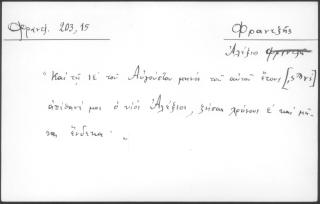 Φραντζ. 203, 15
Φραντζής
Ἀλέξιο
"Καὶ τῇ ιε' τοῦ Αὐγούστου μηνὸς τοῦ αὐτοῦ ἔτους
ἀπέθανέ μοι ὁ υἱὸς Ἀλέξιος, ζήσας χρόνους ε' καὶ μῆ-
νας ἕνδεκα·"